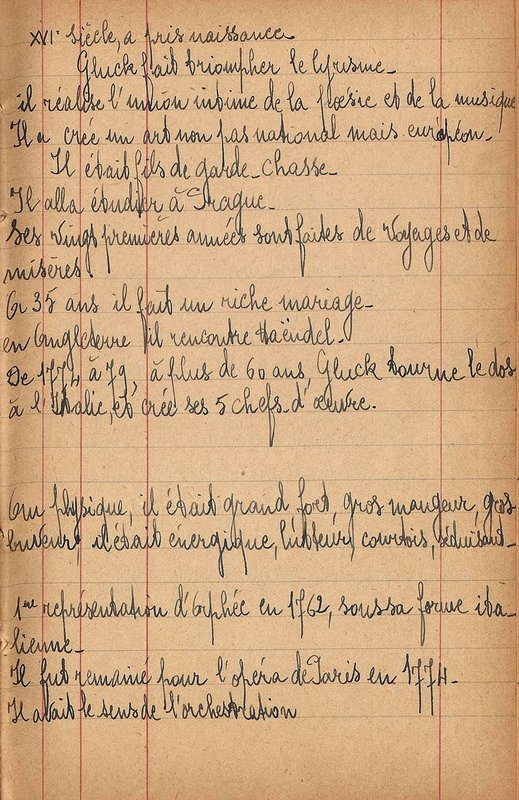 XVIᵉ siècle, a pris naissance
Gluck fait triompher le lyrisme_
il réalise l'union intime de la poésie et de la musique
Il a créé un art non pas national mais européen_
Il était fils de garde_chasse_
Il alla étudier à Prague_
Ses vingt premières années sont faites de voyages et de
misères.
A 35 ans il fait un riche mariage_
en Angleterre il rencontre Haëndel_
De 1774 à 79, à plus de 60 ans Gluck tourne le dos
à l'Italie, et crée ses 5 chefs_d'œuvre.
Au physique, il était grand fort, gros mangeur, gros
buveur, il était énergique, lutteur, courtois, séduisant_
1ère représentation d'Orphée en 1762, sous sa forme ita_
lienne_
Il fut remanié pour l'opéra de Paris en 1774_
Il avait le sens de l'orchestration